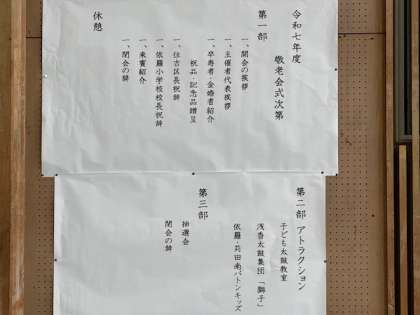 令和七年度
敬老会式次第
第一部
一、開会の挨拶
一、主催者代表挨拶
一、卒寿者・金婚者紹介
祝品・記念品贈呈
一、住吉区長祝辞
一、依羅小学校校長祝辞
一、来賓紹介
一、閉会の辞
休憩
第二部 アトラクション
子ども太鼓教室
浅香太鼓集団「獅子」
依羅・苅田南バトンキッズ
第三部
抽選会
閉会の辞